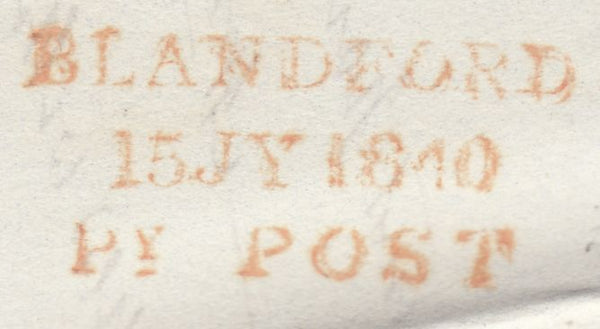 BLANDFORD
15JY1840
PY POST